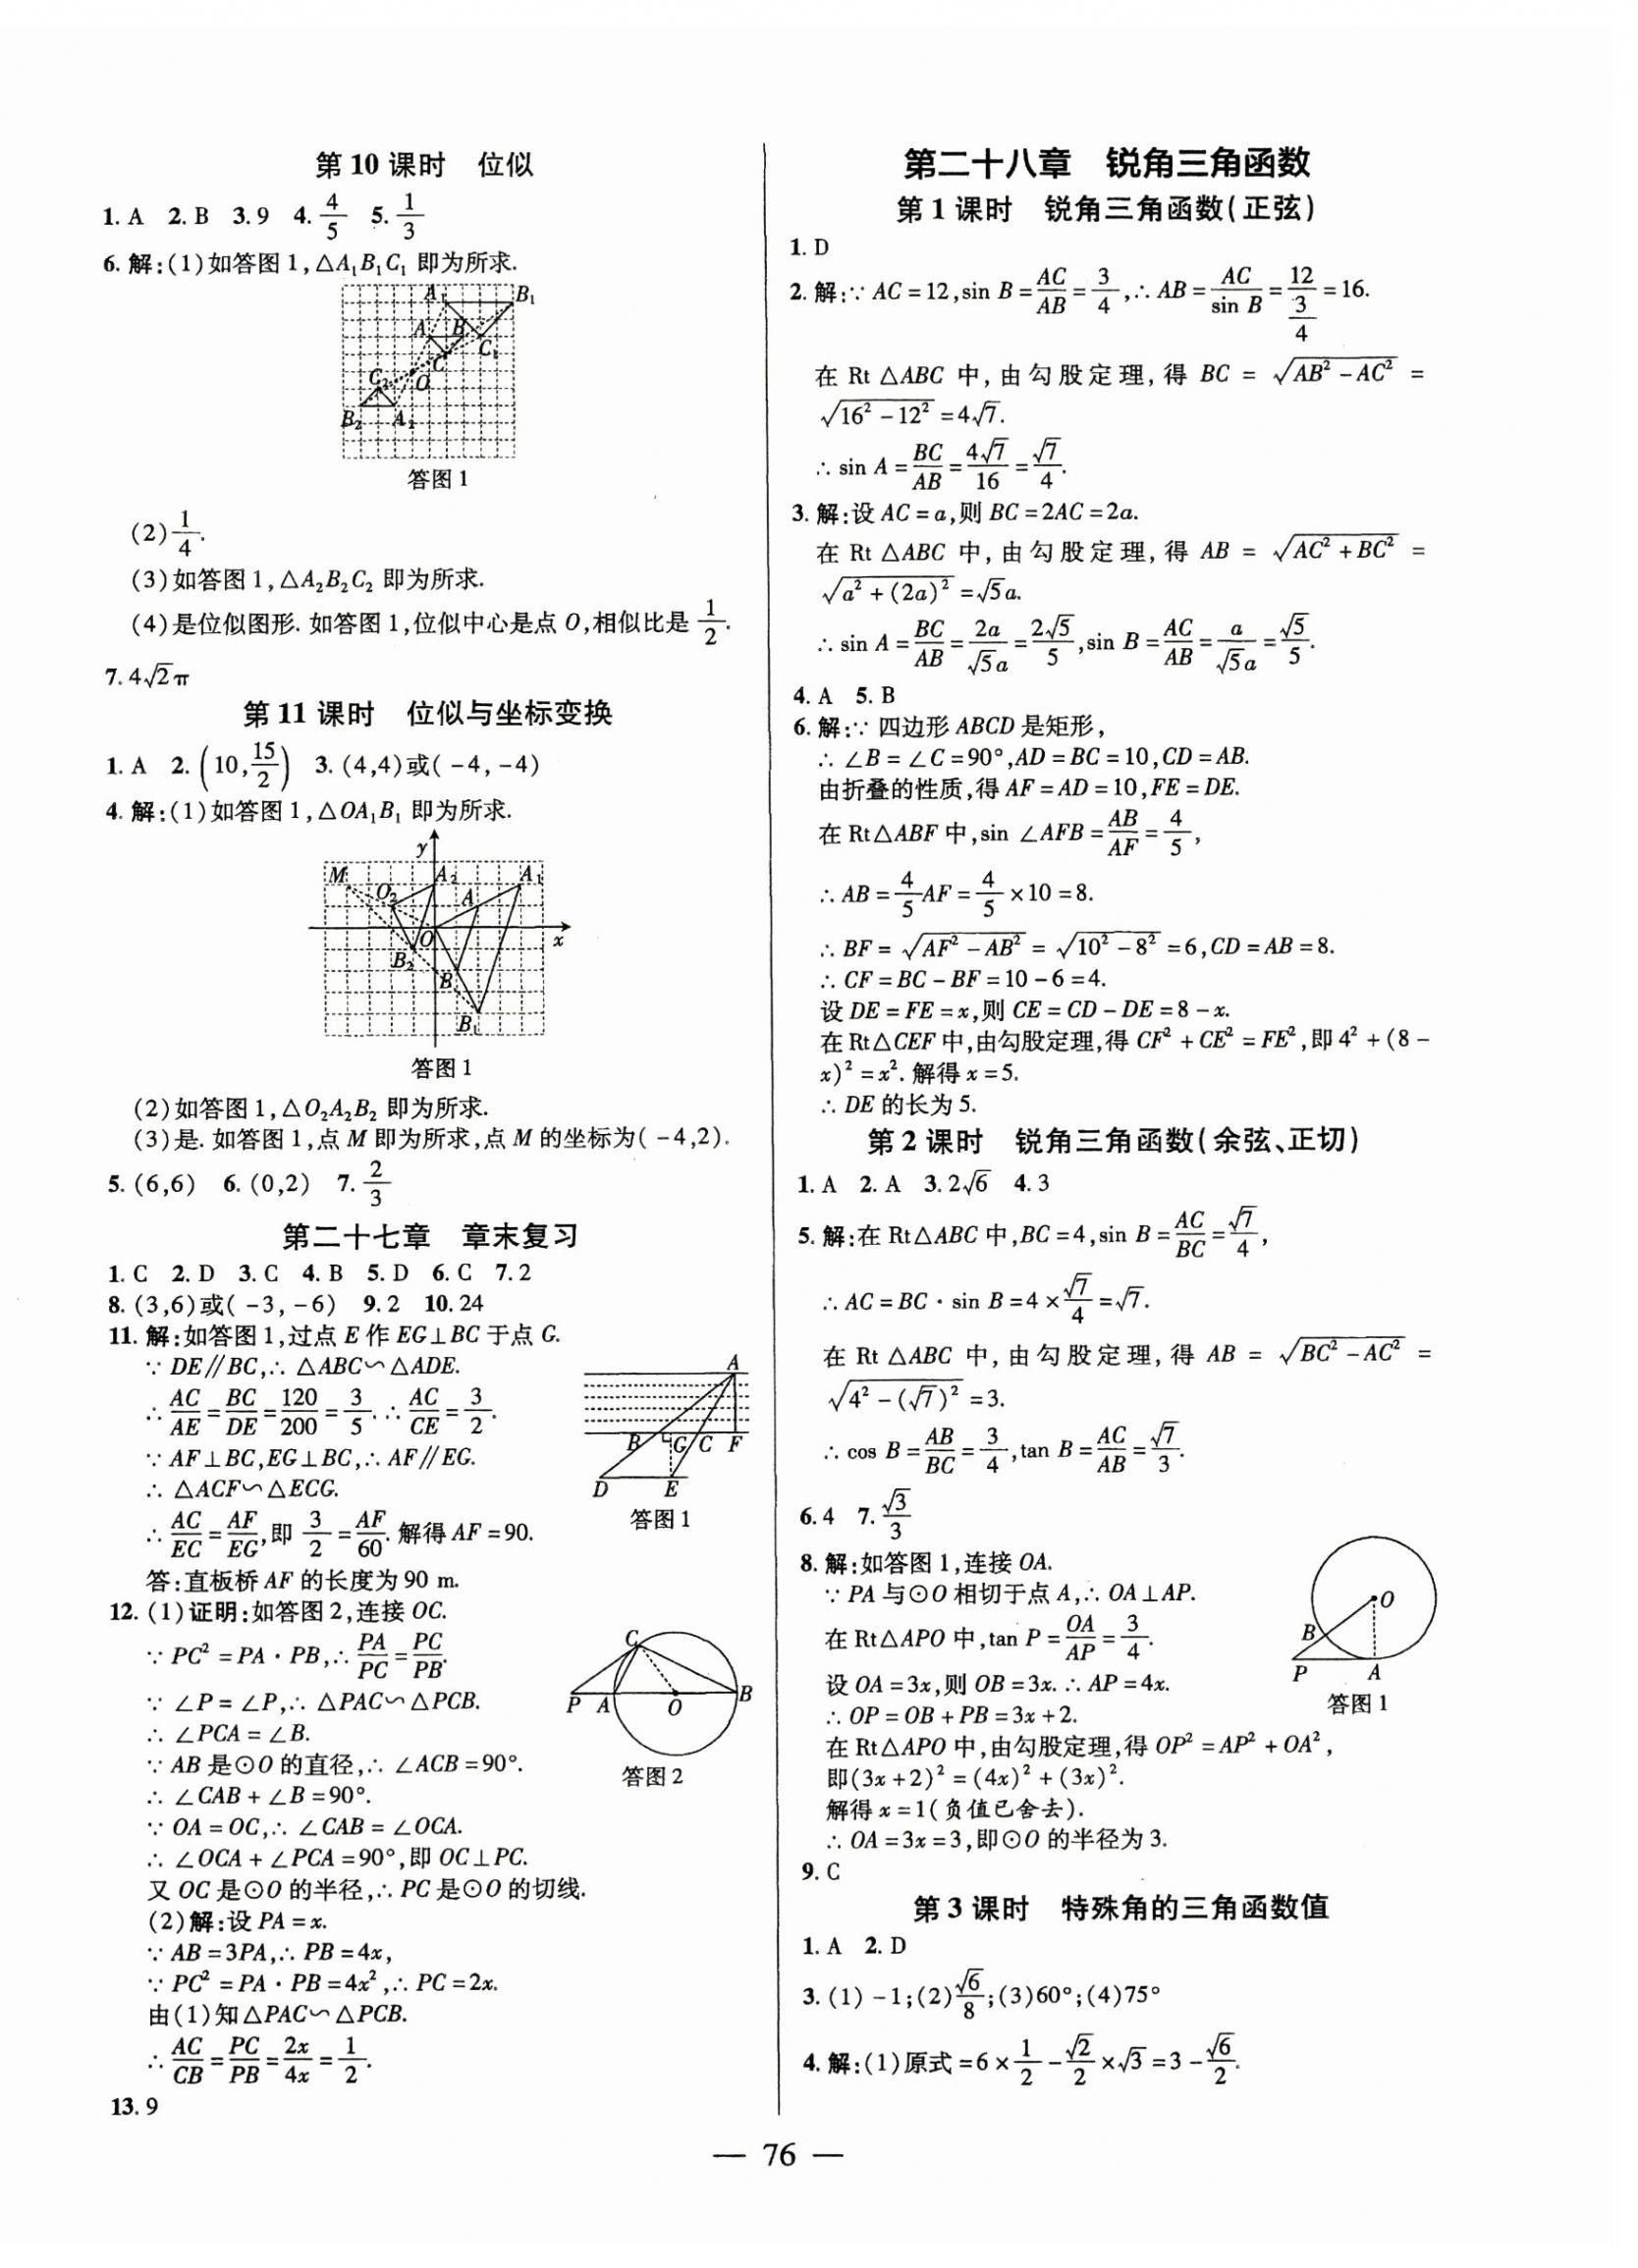 第10课时　位似
1. A　2. B　3. 9　4. 4/5　5. 1/3
6. 解:(1)如答图1,△A₁B₁C₁ 即为所求.
A₁ B₁
A B
C₁
C
C₂ O
B₂ A₂
答图1
(2)1/4.
(3)如答图1,△A₂B₂C₂ 即为所求.
(4)是位似图形. 如答图1,位似中心是点O,相似比是1/2.
7. 4√2π
第11课时　位似与坐标变换
1. A　2. (10,15/2)　3. (4,4)或(-4,-4)
4. 解:(1)如答图1,△OA₁B₁ 即为所求.
y
M A₂ A₁
O₂ A
O x
B₂
B
B₁
答图1
(2)如答图1,△O₂A₂B₂ 即为所求.
(3)是. 如答图1,点M即为所求,点M的坐标为(-4,2).
5. (6,6)　6. (0,2)　7. 2/3
第二十七章　章末复习
1. C　2. D　3. C　4. B　5. D　6. C　7. 2
8. (3,6)或(-3,-6)　9. 2　10. 24
11. 解:如答图1,过点E作EG⊥BC于点G.
∵DE∥BC,∴△ABC∽△ADE.
∴AC/AE=BC/DE=120/200=3/5.∴AC/CE=3/2.
∵AF⊥BC,EG⊥BC,∴AF∥EG.
∴△ACF∽△ECG.
∴AC/EC=AF/EG,即3/2=AF/60.解得AF=90.
答:直板桥AF的长度为90 m.
A
B G C F
D E
答图1
12. (1)证明:如答图2,连接OC.
∵PC²=PA·PB,∴PA/PC=PC/PB.
∵∠P=∠P,∴△PAC∽△PCB.
∴∠PCA=∠B.
∵AB是⊙O的直径,∴∠ACB=90°.
∴∠CAB+∠B=90°.
∵OA=OC,∴∠CAB=∠OCA.
∴∠OCA+∠PCA=90°,即OC⊥PC.
又OC是⊙O的半径,∴PC是⊙O的切线.
C
P A O B
答图2
(2)解:设PA=x.
∵AB=3PA,∴PB=4x,
∵PC²=PA·PB=4x²,∴PC=2x.
由(1)知△PAC∽△PCB.
∴AC/CB=PC/PB=2x/4x=1/2.
13. 9
第二十八章　锐角三角函数
第1课时　锐角三角函数(正弦)
1. D
2. 解:∵AC=12,sin B=AC/AB=3/4,∴AB=AC/sin B=12/(3/4)=16.
在Rt△ABC中,由勾股定理,得BC=√(AB²-AC²)=
√(16²-12²)=4√7.
∴sin A=BC/AB=4√7/16=√7/4.
3. 解:设AC=a,则BC=2AC=2a.
在Rt△ABC中,由勾股定理,得AB=√(AC²+BC²)=
√(a²+(2a)²)=√5a.
∴sin A=BC/AB=2a/√5a=2√5/5,sin B=AC/AB=a/√5a=√5/5.
4. A　5. B
6. 解:∵四边形ABCD是矩形,
∴∠B=∠C=90°,AD=BC=10,CD=AB.
由折叠的性质,得AF=AD=10,FE=DE.
在Rt△ABF中,sin∠AFB=AB/AF=4/5,
∴AB=4/5AF=4/5×10=8.
∴BF=√(AF²-AB²)=√(10²-8²)=6,CD=AB=8.
∴CF=BC-BF=10-6=4.
设DE=FE=x,则CE=CD-DE=8-x.
在Rt△CEF中,由勾股定理,得CF²+CE²=FE²,即4²+(8-
x)²=x².解得x=5.
∴DE的长为5.
第2课时　锐角三角函数(余弦、正切)
1. A　2. A　3. 2√6　4. 3
5. 解:在Rt△ABC中,BC=4,sin B=AC/BC=√7/4,
∴AC=BC·sin B=4×√7/4=√7.
在Rt△ABC中,由勾股定理,得AB=√(BC²-AC²)=
√(4²-(√7)²)=3.
∴cos B=AB/BC=3/4,tan B=AC/AB=√7/3.
6. 4　7. √3/3
8. 解:如答图1,连接OA.
∵PA与⊙O相切于点A,∴OA⊥AP.
在Rt△APO中,tan P=OA/AP=3/4.
设OA=3x,则OB=3x.∴AP=4x.
∴OP=OB+PB=3x+2.
在Rt△APO中,由勾股定理,得OP²=AP²+OA²,
即(3x+2)²=(4x)²+(3x)².
解得x=1(负值已舍去).
∴OA=3x=3,即⊙O的半径为3.
O
B
P A
答图1
9. C
第3课时　特殊角的三角函数值
1. A　2. D
3. (1)-1;(2)√6/8;(3)60°;(4)75°
4. 解:(1)原式=6×1/2-√2/2×√3=3-√6/2.
— 76 —